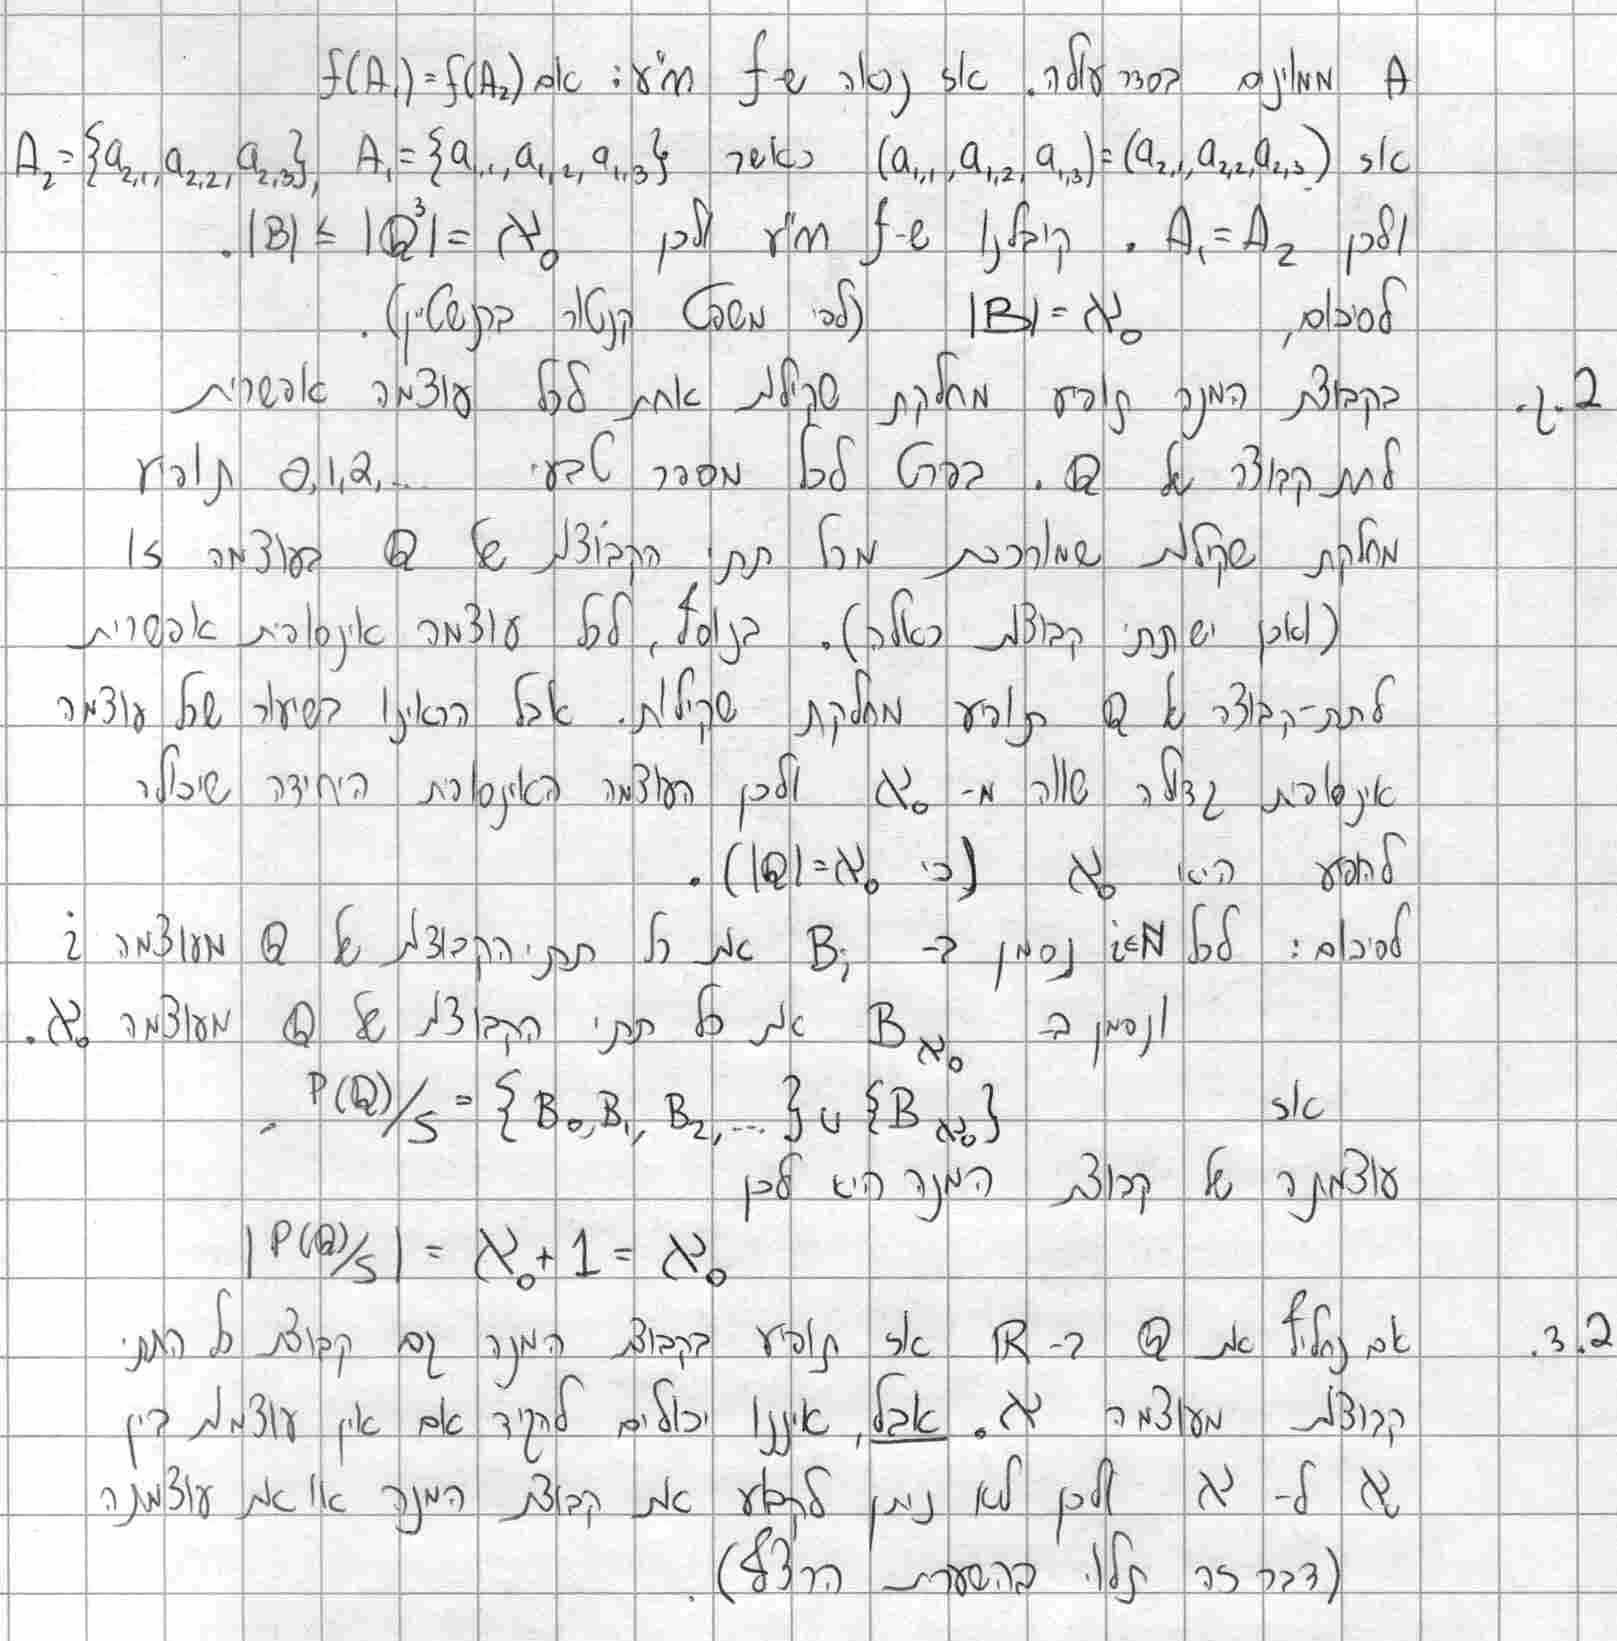 A ממוינים בסדר עולה. אז נראה ש-f חח"ע: אם f(A₁)=f(A₂)
אז (a₁,₁,a₁,₂,a₁,₃)=(a₂,₁,a₂,₂,a₂,₃) כאשר A₁={a₁,₁,a₁,₂,a₁,₃}, A₂={a₂,₁,a₂,₂,a₂,₃}
ולכן A₁=A₂. קיבלנו ש-f חח"ע ולכן |B|≤|ℚ³|=ℵ₀.
לסיכום, |B|=ℵ₀ (לפי משפט קנטור ברנשטיין).
2.ג. בקבוצת המנה תופיע מחלקת שקילות אחת לכל עוצמה אפשרית
לתת קבוצה של ℚ. בפרט לכל מספר טבעי 0,1,2,... תופיע
מחלקת שקילות שמורכבת מכל תתי הקבוצות של ℚ בעוצמה זו
(ואכן יש תתי קבוצות כאלה). בנוסף, לכל עוצמה אינסופית אפשרית
לתת-קבוצה של ℚ תופיע מחלקת שקילות. אבל הראינו בשיעור שכל עוצמה
אינסופית גדולה שווה מ-ℵ₀ ולכן העוצמה האינסופית היחידה שיכולה
להופיע היא ℵ₀ (כי |ℚ|=ℵ₀).
לסיכום: לכל i∈ℕ נסמן ב-Bᵢ את כל תתי הקבוצות של ℚ מעוצמה i
ונסמן ב-B_ℵ₀ את כל תתי הקבוצות של ℚ מעוצמה ℵ₀.
אז P(ℚ)/S={B₀,B₁,B₂,...}∪{B_ℵ₀}.
עוצמתה של קבוצת המנה היא לכן
|P(ℚ)/S|=ℵ₀+1=ℵ₀
2.ד. אם נחליף את ℚ ב-ℝ אז תופיע בקבוצת המנה גם קבוצת כל התתי
קבוצות מעוצמה ℵ. אבל, איננו יכולים להגיד אם אין עוצמות בין
ℵ₀ ל-ℵ ולכן לא ניתן לקבוע את קבוצת המנה או את עוצמתה
(דבר זה תלוי בהשערת הרצף).